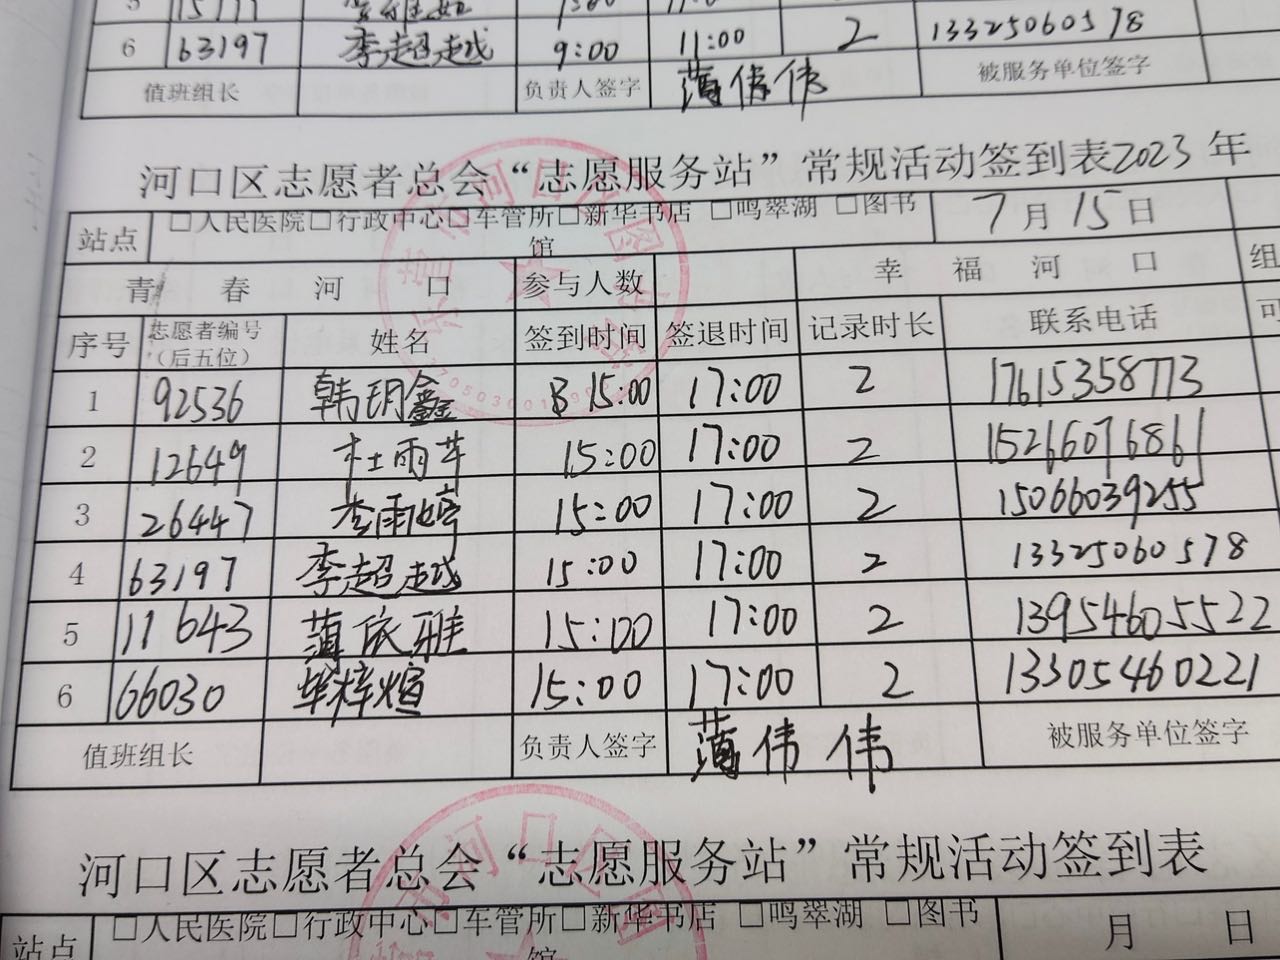 6 63197 李超越 9:00 11:00 2 13325060578
值班组长 负责人签字 薄伟伟 被服务单位签字
河口区志愿者总会“志愿服务站”常规活动签到表2023年
站点 □人民医院□行政中心□车管所□新华书店 □鸣翠湖 □图书馆 7月15日
青春河口 参与人数 幸福河口 组
序号 志愿者编号（后五位） 姓名 签到时间 签退时间 记录时长 联系电话 可
1 92536 韩玥鑫 15:00 17:00 2 17615358773
2 12649 杜雨芊 15:00 17:00 2 15216076861
3 26447 李雨婷 15:00 17:00 2 15066039255
4 63197 李超越 15:00 17:00 2 13325060578
5 11643 薄依雅 15:00 17:00 2 13954605522
6 66030 梓煊 15:00 17:00 2 13305460221
值班组长 负责人签字 薄伟伟 被服务单位签字
河口区志愿者总会“志愿服务站”常规活动签到表
站点 □人民医院□行政中心□车管所□新华书店 □鸣翠湖 □图书馆 月 日